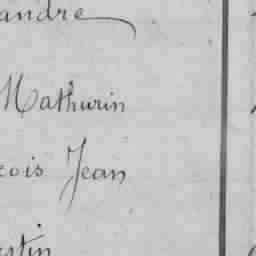 andre
Mathurin
cois Jean
stin